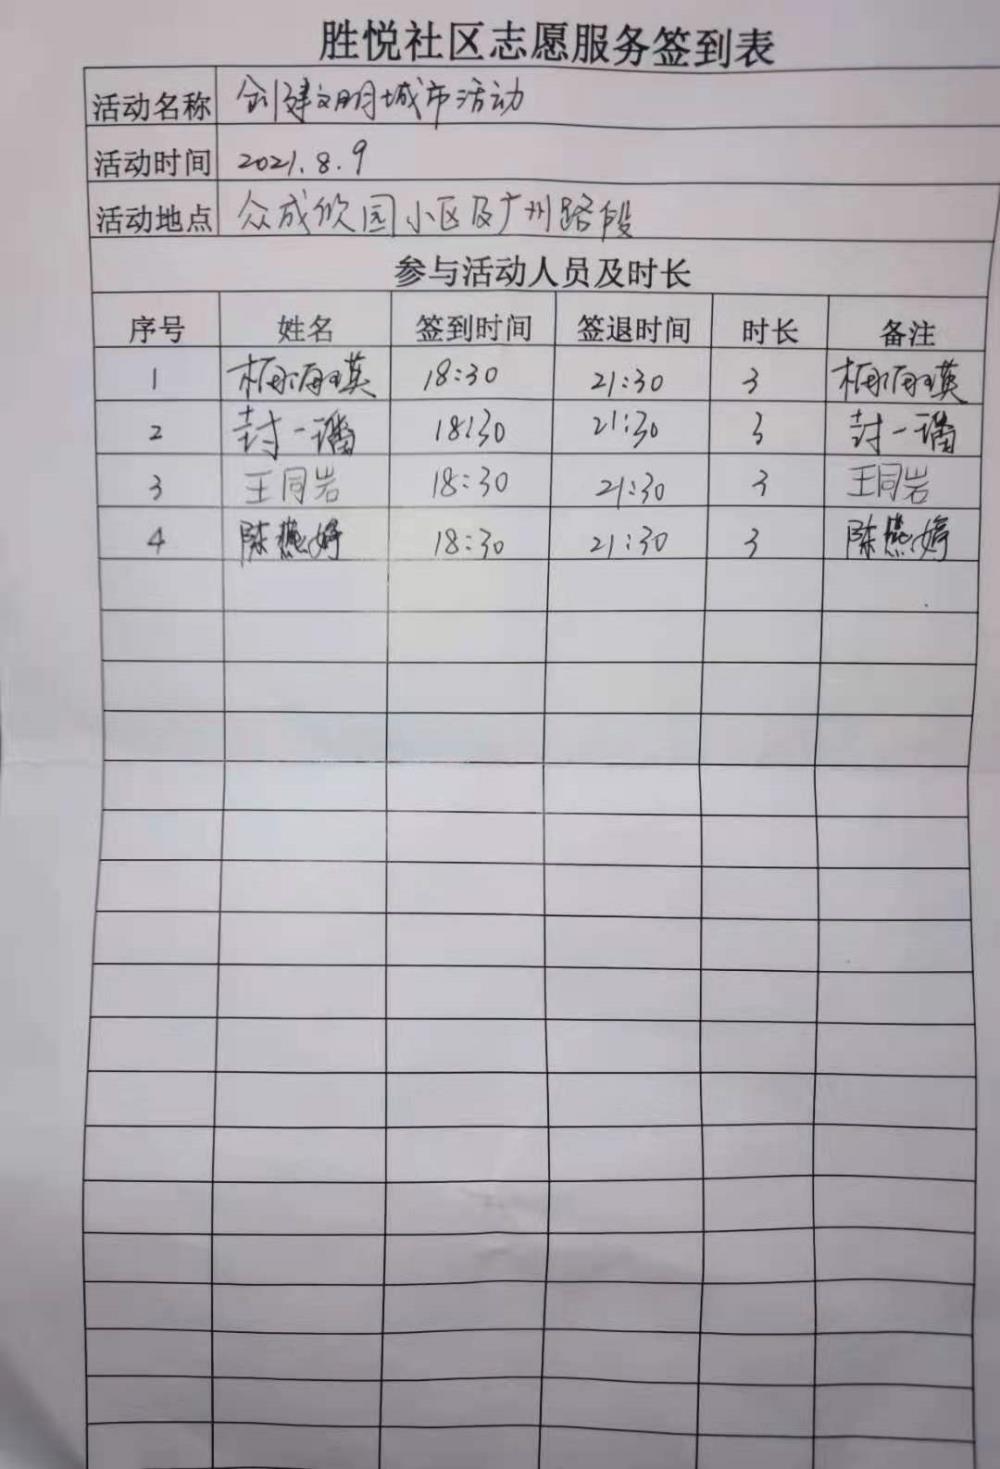 胜悦社区志愿服务签到表
活动名称 创建文明城市活动
活动时间 2021.8.9
活动地点 众成欣园小区及广州路段
参与活动人员及时长
序号 姓名 签到时间 签退时间 时长 备注
1 18:30 21:30 3
2 封一璠 18:30 21:30 3 封一璠
3 王同岩 18:30 21:30 3 王同岩
4 陈燕婷 18:30 21:30 3 陈燕婷